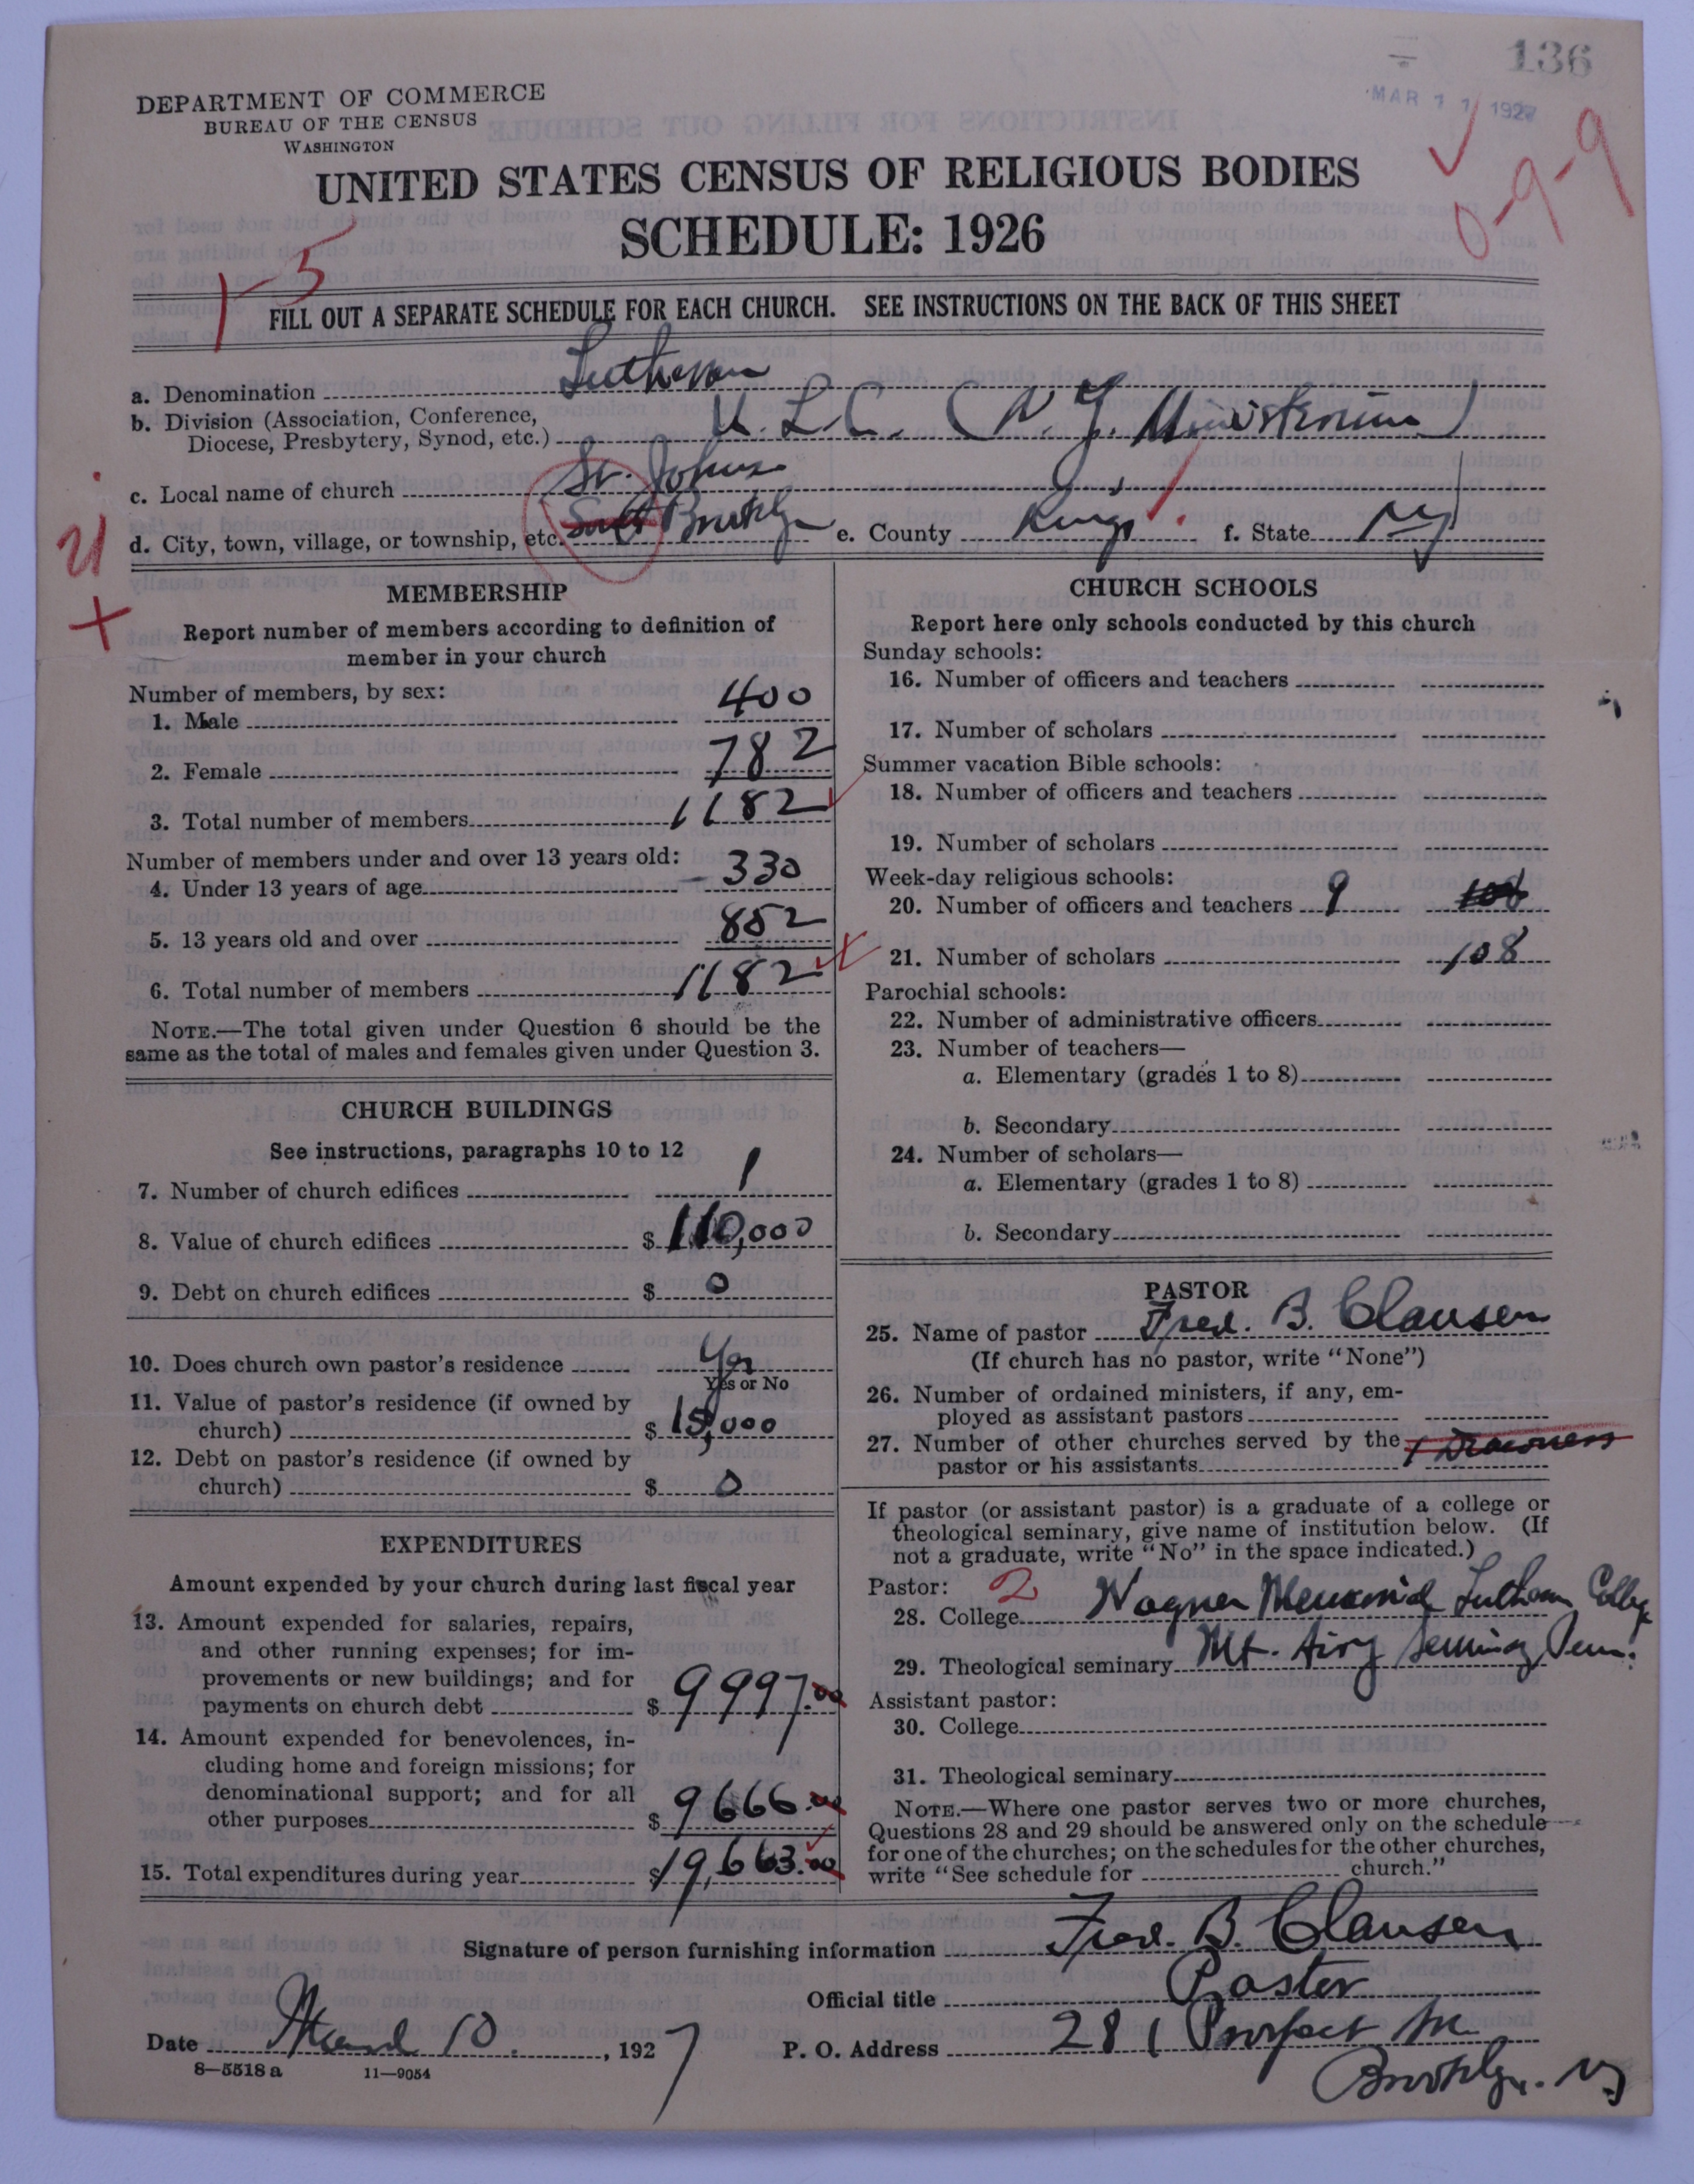 136
MAR 11 1927
DEPARTMENT OF COMMERCE
BUREAU OF THE CENSUS
WASHINGTON
UNITED STATES CENSUS OF RELIGIOUS BODIES
SCHEDULE: 1926
0-9-9
1-5
FILL OUT A SEPARATE SCHEDULE FOR EACH CHURCH. SEE INSTRUCTIONS ON THE BACK OF THIS SHEET
a. Denomination Lutheran
b. Division (Association, Conference,
Diocese, Presbytery, Synod, etc.) U. L. C. (N. Y. Ministerium)
c. Local name of church St. Johns
d. City, town, village, or township, etc. Brooklyn e. County Kings f. State NY
MEMBERSHIP
Report number of members according to definition of
member in your church
Number of members, by sex:
1. Male 400
2. Female 782
3. Total number of members 1182
Number of members under and over 13 years old:
4. Under 13 years of age 330
5. 13 years old and over 852
6. Total number of members 1182
NOTE.—The total given under Question 6 should be the
same as the total of males and females given under Question 3.
CHURCH BUILDINGS
See instructions, paragraphs 10 to 12
7. Number of church edifices 1
8. Value of church edifices $ 110,000
9. Debt on church edifices $ 0
10. Does church own pastor's residence Yes
Yes or No
11. Value of pastor's residence (if owned by
church) $ 15,000
12. Debt on pastor's residence (if owned by
church) $ 0
EXPENDITURES
Amount expended by your church during last fiscal year
13. Amount expended for salaries, repairs,
and other running expenses; for im-
provements or new buildings; and for
payments on church debt $ 9997.00
14. Amount expended for benevolences, in-
cluding home and foreign missions; for
denominational support; and for all
other purposes $ 9666.00
15. Total expenditures during year $ 19,663.00
CHURCH SCHOOLS
Report here only schools conducted by this church
Sunday schools:
16. Number of officers and teachers
17. Number of scholars
Summer vacation Bible schools:
18. Number of officers and teachers
19. Number of scholars
Week-day religious schools:
20. Number of officers and teachers 9 108
21. Number of scholars 108
Parochial schools:
22. Number of administrative officers
23. Number of teachers—
a. Elementary (grades 1 to 8)
b. Secondary
24. Number of scholars—
a. Elementary (grades 1 to 8)
b. Secondary
PASTOR
25. Name of pastor Fred. B. Clausen
(If church has no pastor, write "None")
26. Number of ordained ministers, if any, em-
ployed as assistant pastors
27. Number of other churches served by the
pastor or his assistants
If pastor (or assistant pastor) is a graduate of a college or
theological seminary, give name of institution below. (If
not a graduate, write "No" in the space indicated.)
Pastor: 2
28. College Wagner Memorial Lutheran College
29. Theological seminary Mt. Airy Seminary Penn.
Assistant pastor:
30. College
31. Theological seminary
NOTE.—Where one pastor serves two or more churches,
Questions 28 and 29 should be answered only on the schedule
for one of the churches; on the schedules for the other churches,
write "See schedule for church."
Signature of person furnishing information Fred. B. Clausen
Official title Pastor
Date March 10, 1927 P. O. Address 281 Prospect Ave
Brooklyn. NY
8—5518 a 11—9054